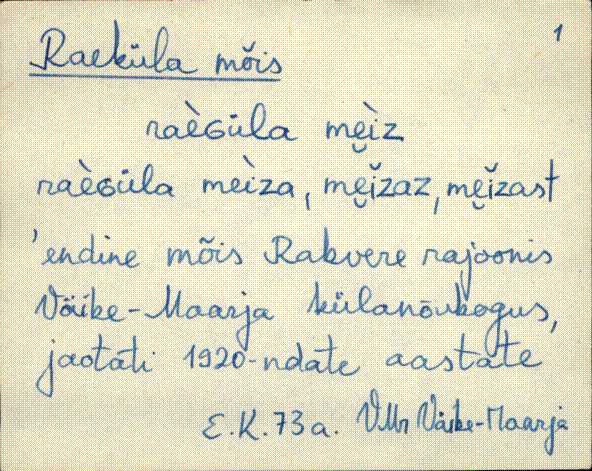 1
Raeküla mõis
raèGüla me̮ìz
raèGüla meìza, me̮ǐzaz, me̮ǐzast
'endine mõis Rakvere rajoonis
Väike-Maarja külanõukogus,
jaotati 1920-ndate aastate
E.K. 73a. VMr Väike-Maarja